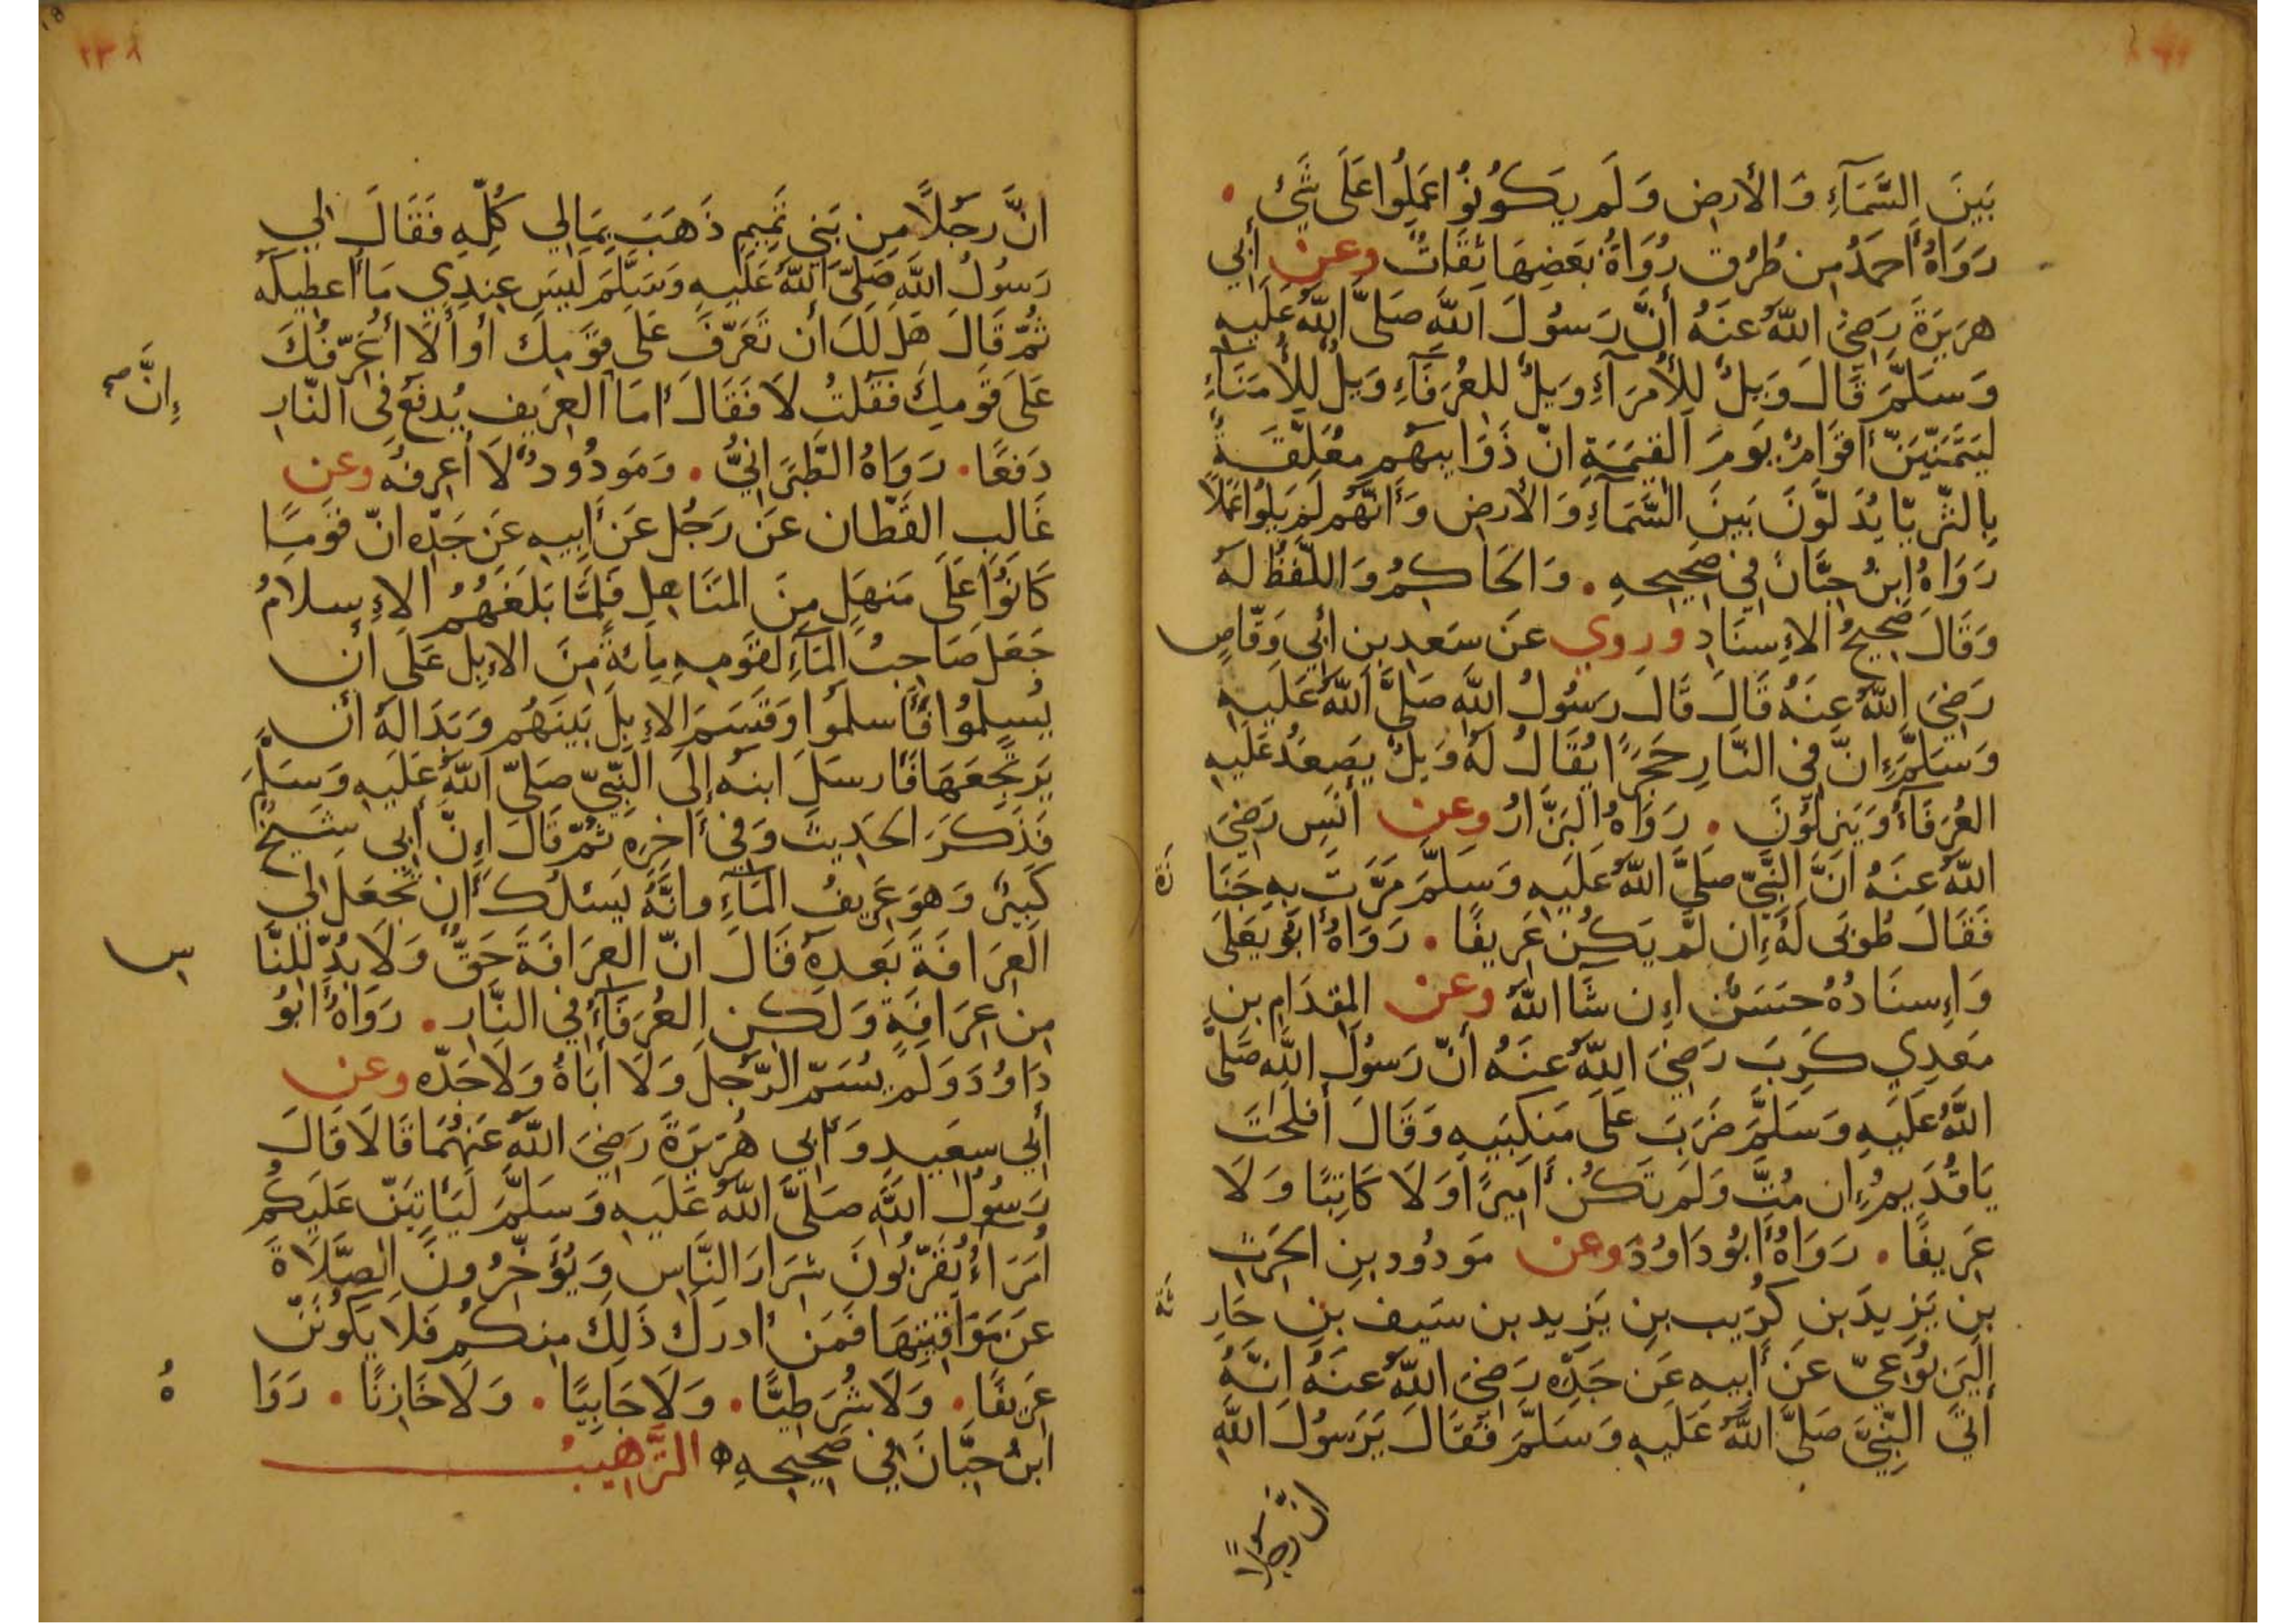 بَينَ السَّمَآءِ وَالأرضِ وَلَم يَكُونُوا عَمِلُوا عَلَى شَيْءٍ .
رَوَاهُ أَحمَدُ مِن طُرُقٍ رُوَاةُ بَعضِهَا ثِقَاتٌ وعن أَبي
هرَيرَةَ رَضِيَ اللَّهُ عنَهُ أَنَّ رَسُولَ اللَّهِ صَلَّى اللَّهُ عَلَيهِ
وَسَلَّمَ قَالَ وَيلٌ لِلأُمَرَآءِ وَيلٌ لِلعُرَفَآءِ وَيلٌ لِلأُمَنَآءِ
لَيَتَمَنَّيَنَّ أَقوَامٌ يَومَ القِيَمَةِ انّ ذَوَايبَهُم مُعَلَّقَةٌ
بِالثّرَيّا يُدَلَّونَ بَينَ السَّمَآءِ وَالأَرضِ وَأَنَّهُم لَم يَلُوا عَمَلًا
رَوَاهُ ابنُ حِبَّانَ فِي صَحِيحِهِ . وَالحَاكِمُ وَاللَّفظُ لَهُ
وَقَالَ صَحِيحُ الإِسنَادِ وروي عَن سَعدِ بنِ أَبي وَقّاصٍ
رَضِيَ اللَّهُ عنَهُ قَالَ قَالَ رَسُولُ اللَّهِ صَلَّى اللَّهُ عَلَيهِ
وَسَلَّمَ إِنَّ فِي النَّارِ حَجَرًا يُقَالُ لَهُ وَيلٌ يَصعَدُ عَلَيهِ
العُرَفَآءُ وَيَنزِلُونَ . رَوَاهُ البَزَّارُ وعن أَنَسٍ رَضِيَ
اللَّهُ عنَهُ انَّ النَّبِيّ صَلَّى اللَّهُ عَلَيهِ وَسَلَّمَ مَرَّت بِهِ جَنَا
زَة
فَقَالَ طُوبَى لَهُ إِن لَم يَكُن عَرِيفًا . رَوَاهُ أبُو يَعلَى
وَإِسنَادُهُ حَسَنٌ إِن شَا اللَّهُ وعن المِقدَامِ بنِ
مَعدِي كَرِبَ رَضِيَ اللَّهُ عنَهُ أنّ رَسُولَ اللَّهِ صَلَّى
اللَّهُ عَلَيهِ وَسَلَّمَ ضَرَبَ عَلَى مَنكِبَيهِ وَقَالَ أَفلَحتَ
يَا قُدَيمُ إِن مُتَّ وَلَم تَكُن أَمِيرًا وَلَا كَاتِبًا وَلَا
عَرِيفًا . رَوَاهُ أَبُو دَاوُدَ وعن مَودُودِ بنِ الحَرَثِ
بنِ يَزِيدَ بنِ كُرَيبِ بنِ يَزِيد بن سَيفِ بنِ حَارِ
ثَة
اليَربُوعيّ عَن أَبِيهِ عَن جَدِّهِ رَضِيَ اللَّهُ عنَهُ انَّهُ
أَتَى النَّبِيَّ صَلَّى اللَّهُ عَلَيهِ وَسَلَّمَ فَقَالَ يَرَسُولَ اللَّهِ
انَّ رجلًا
٢٣٨
انَّ رَجُلًا مِن بَنِي تَمِيمٍ ذَهَبَ بِمَالِي كُلِّهِ فَقَالَ لِي
رَسُولُ اللَّهِ صَلَّى اللَّهُ عَلَيهِ وَسَلَّمَ لَيسَ عِندِي مَا أُعطِيكَهُ
ثُمّ قَالَ هَل لَكَ أن تَعَرَّفَ عَلَى قَومِكَ أو أَلَا أُعَرِّفُكَ
عَلَى قَومِكَ فَقلتُ لَا فَقَالَ أمَا العَرِيفَ يُدفَعُ فِي النّارِ
إِنَّ صح
دَفعًا . رَوَاهُ الطَّبَرَانِيُّ . وَمَودُودٌ لَا أعرِفُهُ وعن
غَالِبٍ القَطّان عَن رَجُلٍ عَن أَبِيهِ عَن جَدِّهِ انّ قَومًا
كَانُوا عَلَى مَنهَلٍ مِنَ المَنَاهِلِ فَلَمَّا بَلَغَهُمُ الإِسلَامُ
جَعَلَ صَاحِبُ المَآءِ لقَومِهِ مِائَةً مِنَ الإِبِلِ عَلَى أن
يُسلِمُوا فَأَسلَمُوا وَقَسَمَ الإِبِلَ بَينَهُم وَبَدَا لَهُ أَن
يَرتَجِعَهَا فَارسَلَ ابنَهُ إِلَى النَّبِيّ صَلَّى اللَّهُ عَلَيهِ وَسَلَّمَ
فَذَكَرَ الحَدِيثَ وَفِي أَخرِهِ ثُمَّ قَالَ إِنَّ أَبِي شَيخٌ
كَبِيرٌ وَهوَ عَرِيفُ المَآءِ وانَّهُ يَسئَلُكَ أَن تَجعَلَ لِي
العِرَافَةَ بَعدَهُ قَالَ انّ العِرَافَةَ حَقٌّ وَلَا بُدَّ لِلنَّا
س
مِن عِرَافَةٍ وَلَكِن العُرَفَآءُ فِي النَّارِ . رَوَاهُ أَبُو
دَاوُدَ وَلَم يُسَمّ الرَّجُلَ وَلَا أَبَاهُ وَلَا جَدَّه وعن
أَبِي سعَيدٍ وَأَبِي هُرَيرَةَ رَضِيَ اللَّهُ عَنهُمَا قَالَا قَالَ
رَسُولُ اللَّهِ صَلَّى اللَّهُ عَلَيهِ وَسَلَّمَ لَيَأتِيَنّ عَلَيكُم
أُمَرَاءُ يُقَرّبُونَ شِرَارَ النَّاسِ وَيُؤَخِّرُونَ الصَّلَاةَ
عَن مَوَاقِيتِهَا فَمَن أدرَكَ ذَلِكَ مِنكُم فَلَا يَكُونَنّ
عَرِيفًا . وَلَا شُرَطِيًّا . وَلَا جَابِيًا . وَلَا خَازِنًا . رَوَا
هُ
ابنُ حِبَّانَ فِي صَحِيحِهِ ه التَّرهيبُ